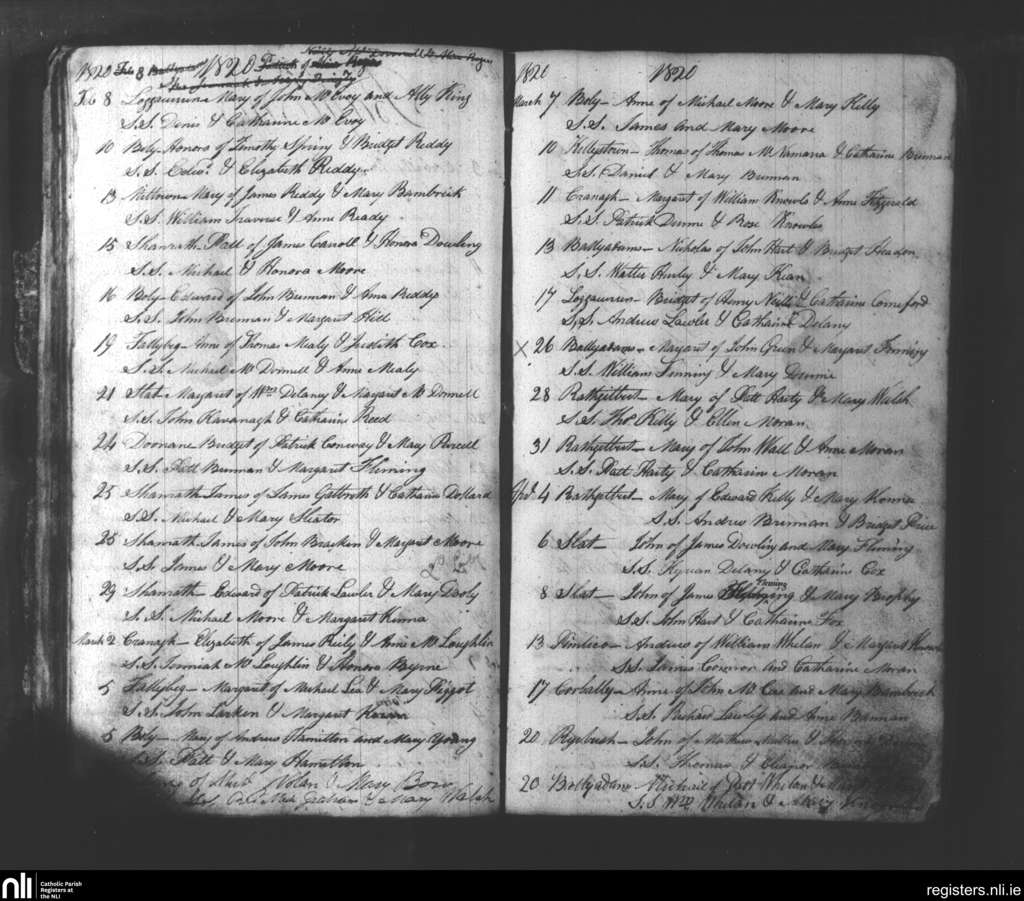 1820 Feb 8 1820
Feb 8 Loggacurren Mary of John McEvoy and Ally King
S.S. Denis & Catharine McEvoy
10 Boly Honora of Timothy Spring & Bridget Reddy
S.S. Edwd. & Elizabeth Reddy
13 Mary of James Reddy & Mary Bambrick
S.S. William Traverse & Anne Ready
15 Shanrath Patt of James Carroll & Honora Dowling
S.S. Michael & Honora Moore
16 Boly Edward of John Brennan & Anne Reddy
S.S. John Brennan & Margaret Hill
19 Fallybeg Anne of Thomas Mealy & Judith Cox
S.S. Michael McDonnell & Anne Mealy
21 Slat Margaret of Wm Delany & Margaret McDonnell
S.S. John Kavanagh & Catharine Reed
24 Doonane Bridget of Patrick Conway & Mary Purcell
S.S. Patt Brennan & Margaret Fleming
25 Shanrath James of James & Catharine Dollard
S.S. Michael & Mary Sleator
25 Shanrath James of John Bracken & Margaret Moore
S.S. James & Mary Moore
29 Shanrath Edward of Patrick Lawler & Mary Dooly
S.S. Michael Moore & Margaret Kinna
March 2 Cranagh Elizabeth of James Reily & Anne McLoughlin
S.S. Jerimiah McLoughlin & Honora Byrne
5 Fallybeg Margaret of Michael Lea & Mary Piggot
S.S. John Larken & Margaret
5 Boly Mary of Andrew Hamilton and Mary Young
S.S. Patt & Mary Hamilton
of Nolan & Mary
& Mary Walsh
1820 1820
March 7 Boly Anne of Michael Moore & Mary Kelly
S.S. James and Mary Moore
10 Kellystown Thomas of Thomas McNamara & Catharine Brennan
S.S. Daniel & Mary Brennan
11 Cranagh Margaret of William Knowls & Anne Fitzgerald
S.S. Patrick Dunne & Rose Knowls
13 Ballyadams Nicholas of John Hart & Bridget Headon
S.S. Walter Hurly & Mary Kean
17 Loggacurren Bridget of Henry Neill & Catharine Comeford
S.S. Andrew Lawler & Catharine Delany
X 26 Ballyadams Margaret of John Green & Margaret
S.S. William & Mary
28 Rathgilbert Mary of Patt Harty & Mary Walsh
S.S. Thos Kelly & Ellen Moran
31 Rathgilbert Mary of John Wall & Anne Moran
S.S. Patt Harty & Catharine Moran
Apl 4 Rathgilbert Mary of Edward Kelly & Mary Konna
S.S. Andrew Brennan & Bridget Price
6 Slat John of James Dowling and Mary Fleming
S.S. Kyrean Delany & Catharine Cox
8 Slat John of James Fleming & Mary Brophy
S.S. John Hart & Catharine Fox
13 Pimlico Andrew of William Whelan & Margaret
S.S. James Connor and Catharine Moran
17 Corbally Anne of John McCae and Mary Bambrick
S.S. Richard Lawless and Anne Bannan
20 Ryebush John of Mathew
S.S. Thomas & Eleanor
20 Ballyadams Michael of Patt Whelan &
S.S. Wm Whelan & Mary
nli Catholic Parish
Registers at
the NLI
registers.nli.ie